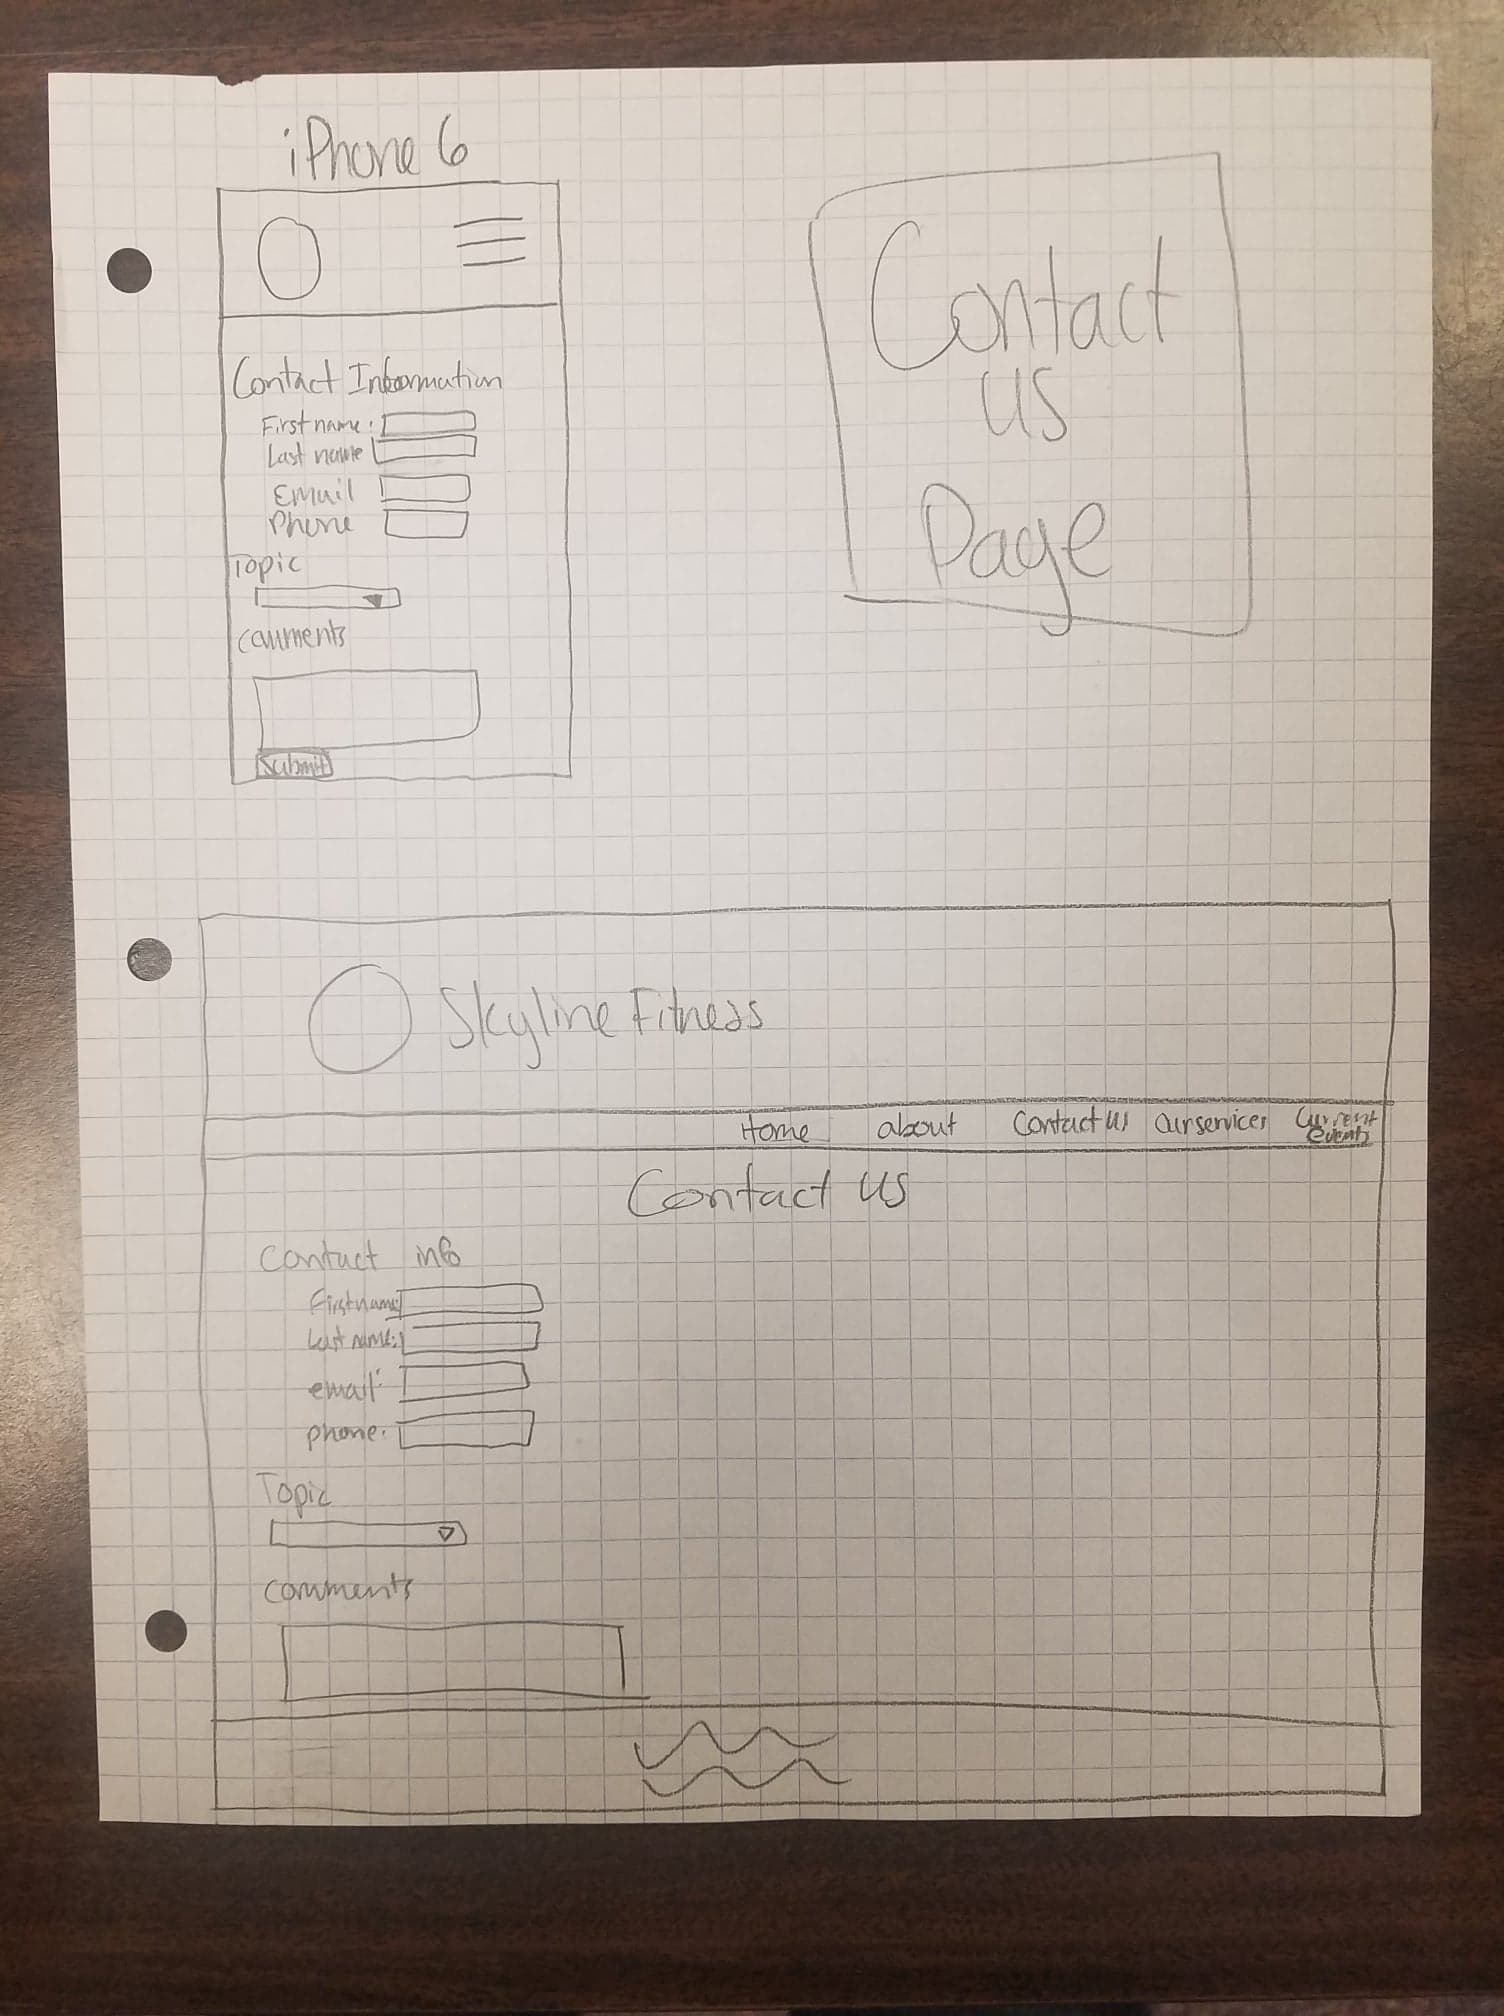 iPhone 6
Contact Information
First name:
Last name
Email
Phone
Topic
comments
Submit
Contact
us
Page
Skyline Fitness
Home about Contact us Our services Current events
Contact us
Contact info
First name:
Last name:
email:
phone:
Topic
comments